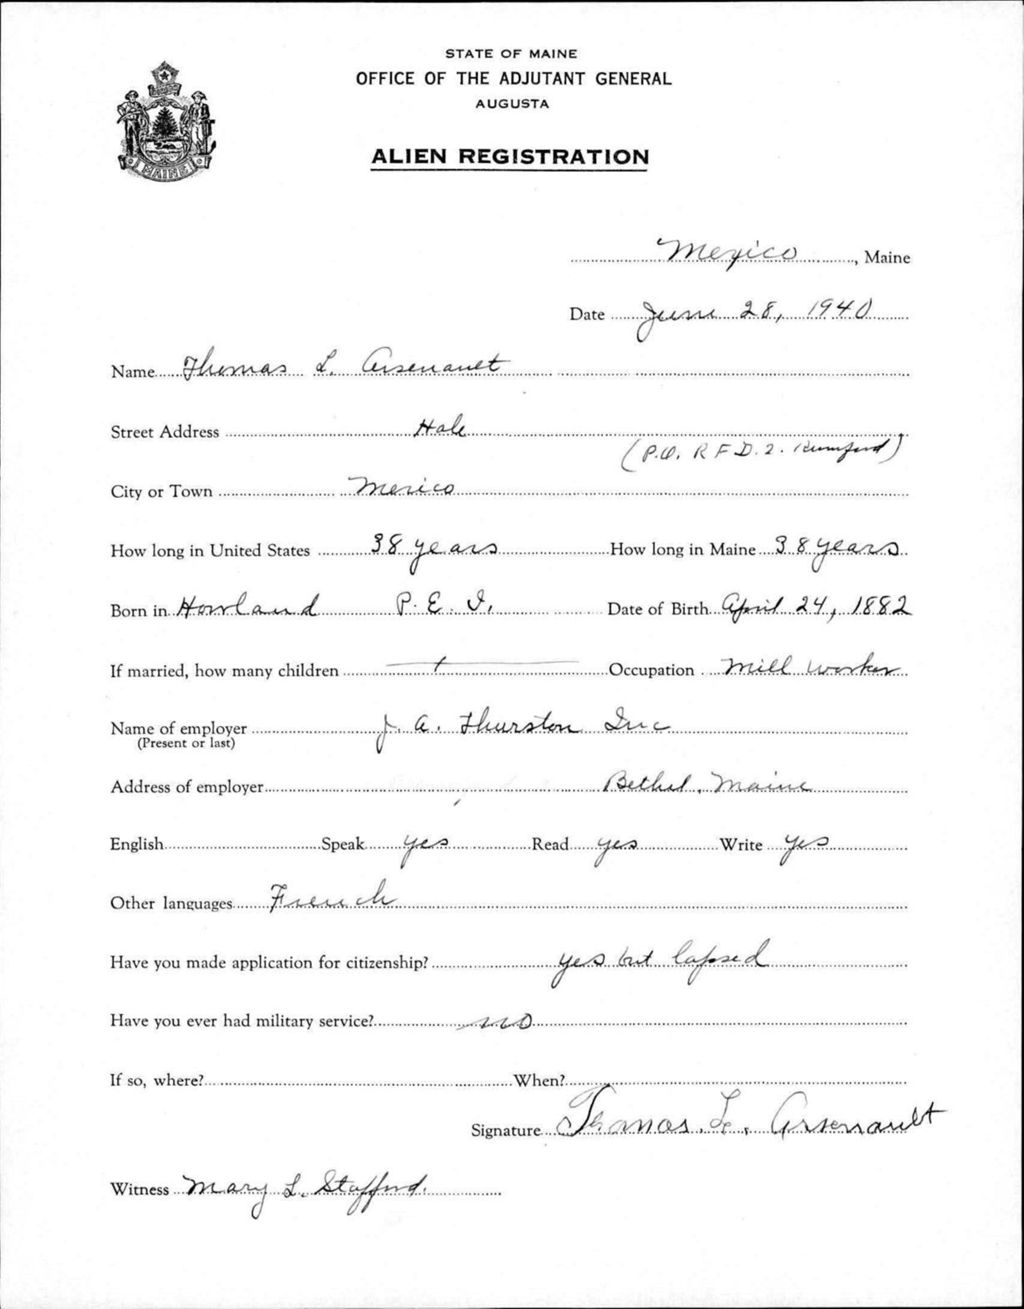 STATE OF MAINE
OFFICE OF THE ADJUTANT GENERAL
AUGUSTA
ALIEN REGISTRATION
MAINE
Mexico, Maine
Date June 28, 1940
Name Thomas L. Arsenault
Street Address Hale
(P.O. R F D. 2. Rumford)
City or Town Mexico
How long in United States 38 years How long in Maine 38 years
Born in Howland P. E. I. Date of Birth April 24, 1882
If married, how many children Occupation Mill worker
Name of employer J. A. Thurston Inc
(Present or last)
Address of employer Bethel, Maine
English Speak yes Read yes Write yes
Other languages French
Have you made application for citizenship? yes but lapsed
Have you ever had military service? no
If so, where? When?
Signature Thomas. L. Arsenault
Witness Mary L. Stafford.